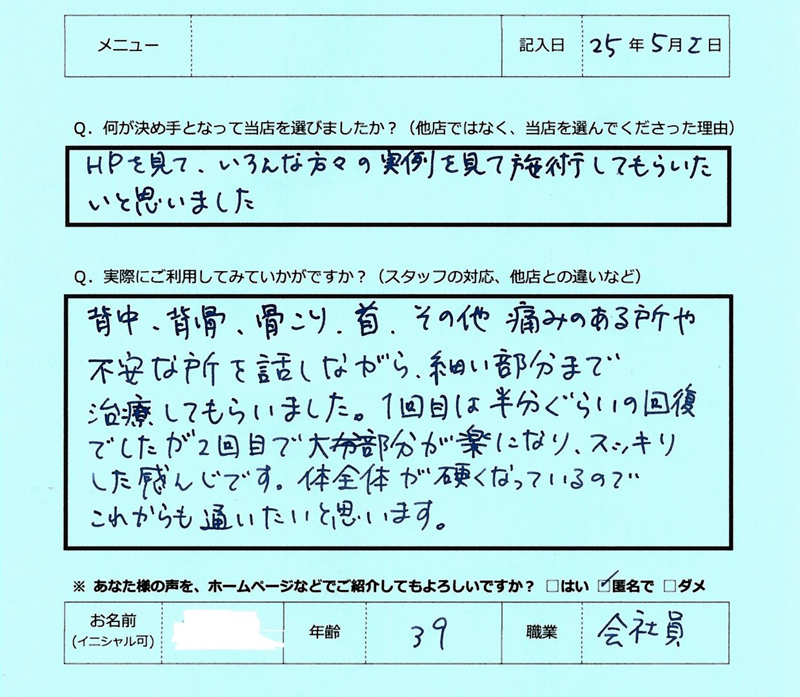 メニュー 記入日 25年5月2日
Q. 何が決め手となって当店を選びましたか？（他店ではなく、当店を選んでくださった理由）
HPを見て、いろんな方々の実例を見て施術してもらいた
いと思いました
Q. 実際にご利用してみていかがですか？（スタッフの対応、他店との違いなど）
背中、背骨、肩こり、首、その他 痛みのある所や
不安な所を話しながら、細い部分まで
治療してもらいました。1回目は半分ぐらいの回復
でしたが2回目で大部分が楽になり、スッキリ
した感んじです。体全体が硬くなっているので
これからも通いたいと思います。
※ あなた様の声を、ホームページなどでご紹介してもよろしいですか？ □はい ☑匿名で □ダメ
お名前 年齢 39 職業 会社員
(イニシャル可)